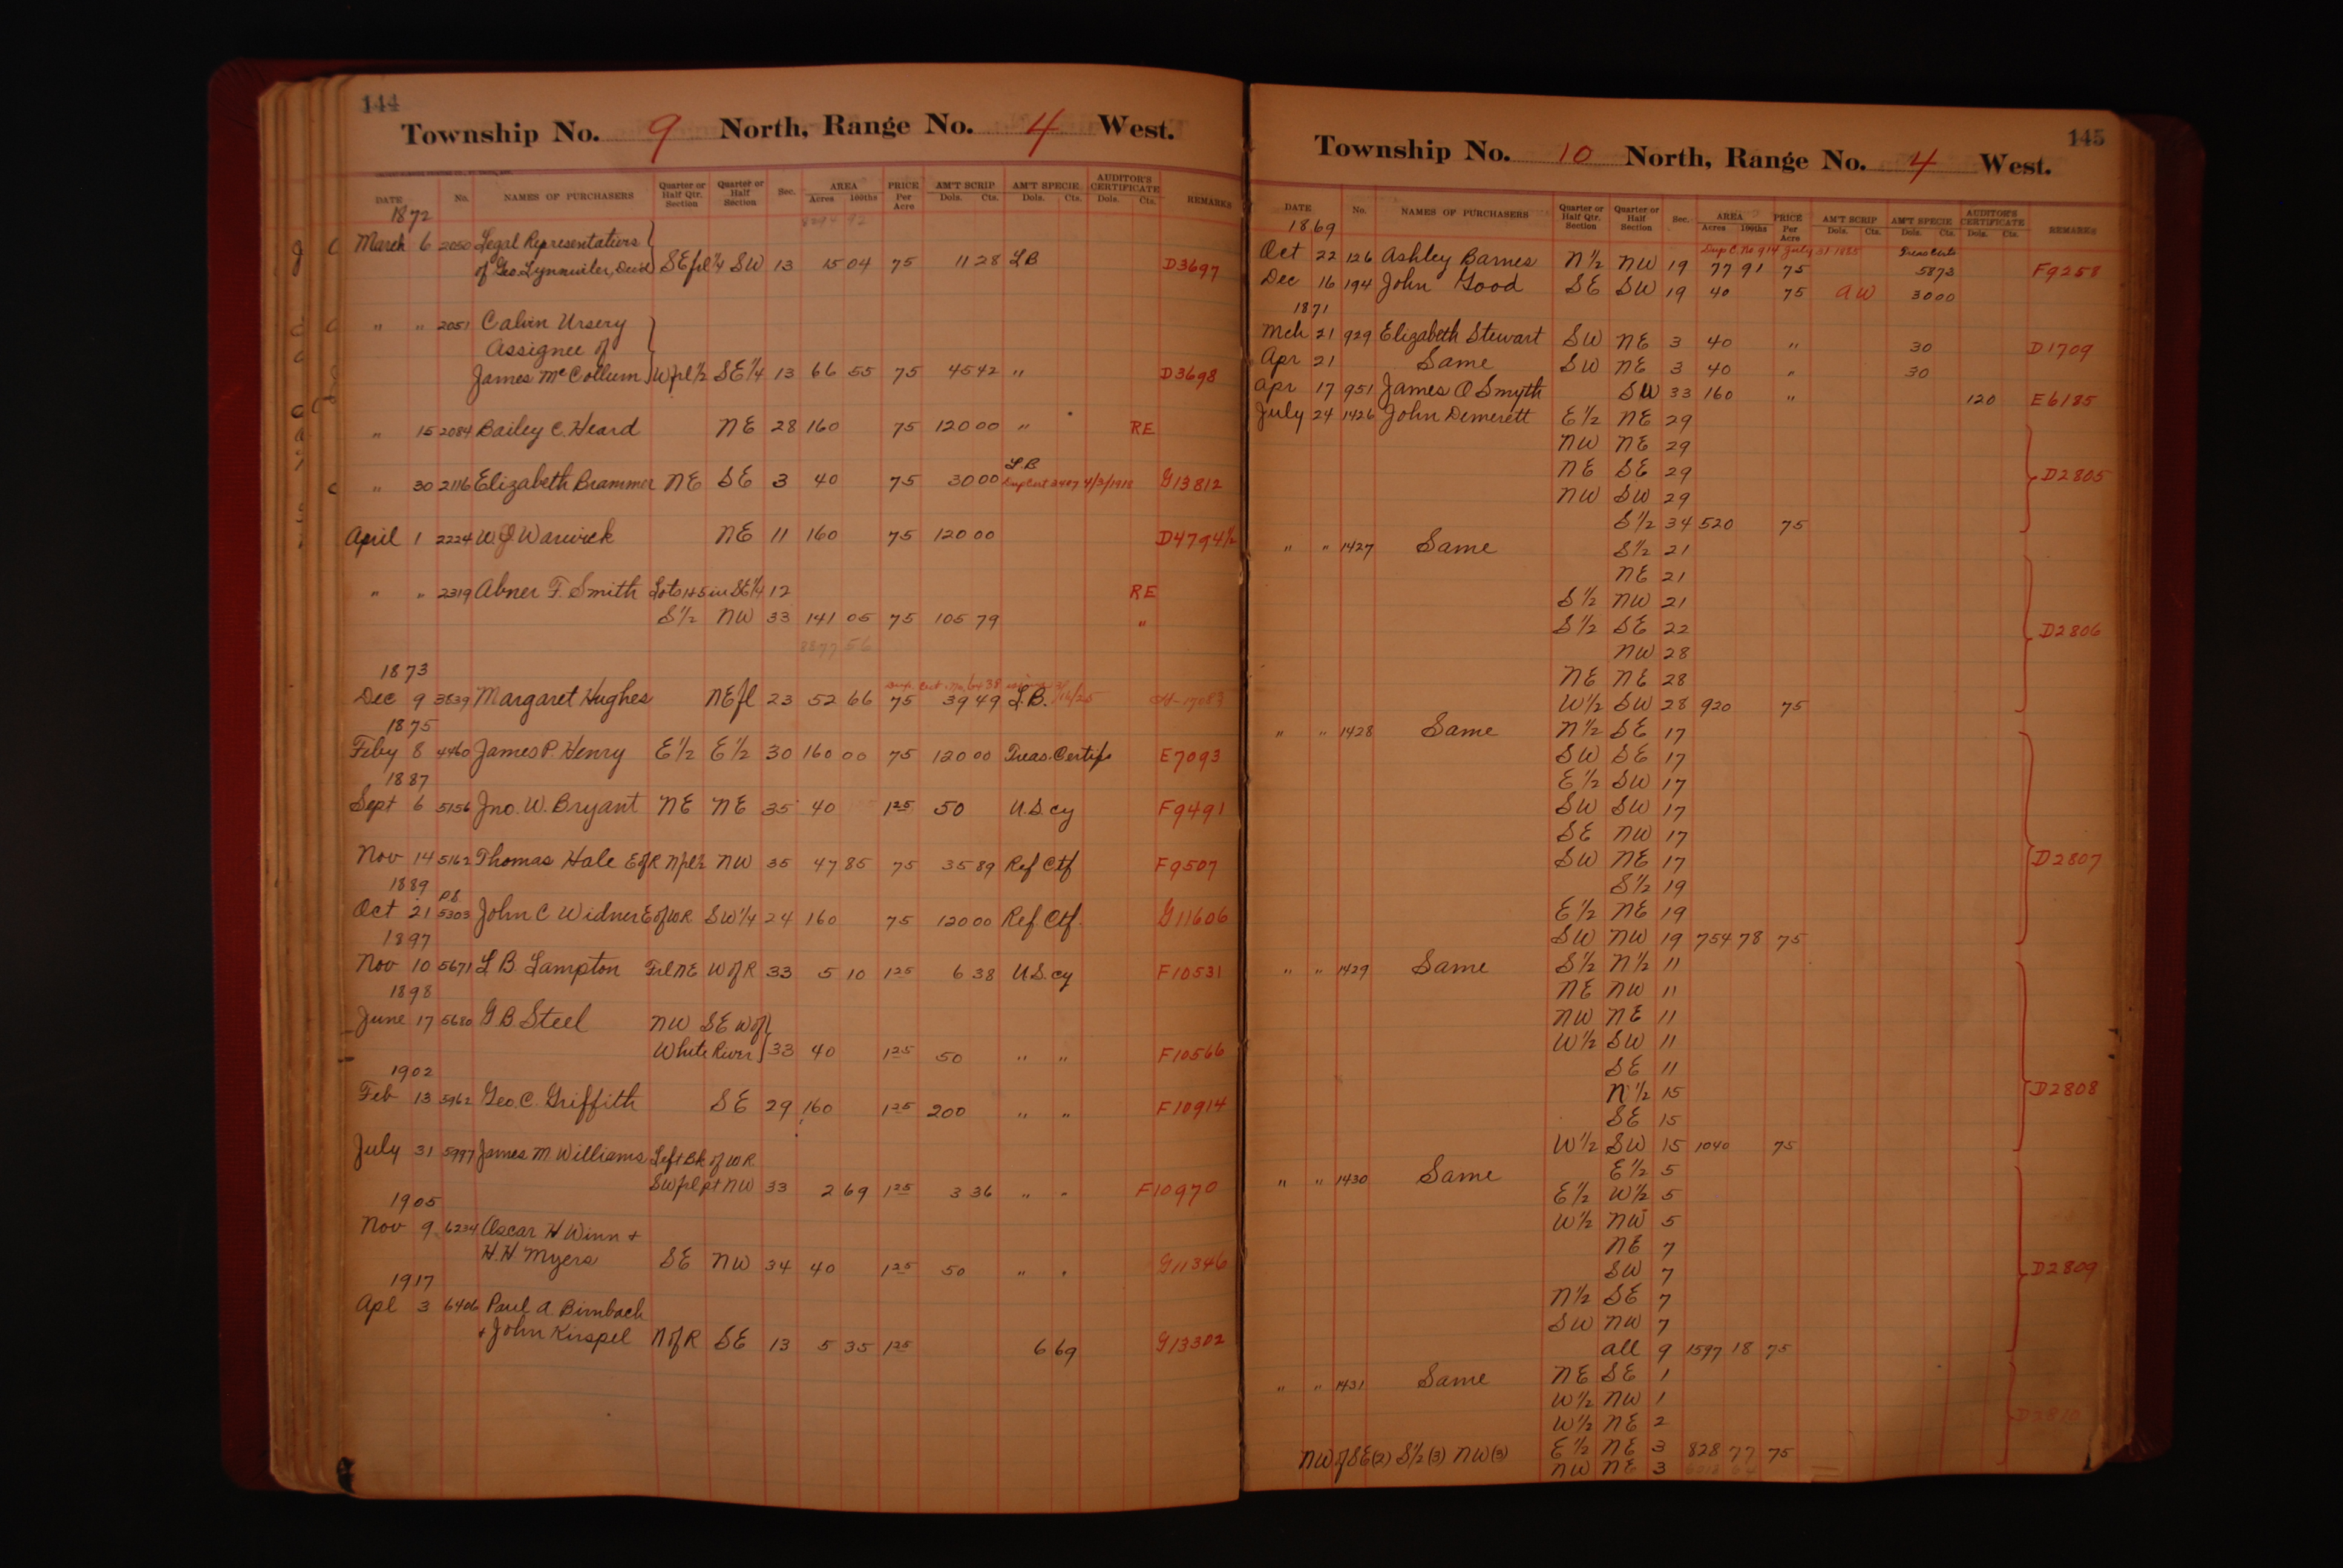 144
Township No. 9 North, Range No. 4 West.
DATE No. NAMES OF PURCHASERS Quarter or Half Qtr. Section Quarter or Half Section Sec. AREA Acres 100ths PRICE Per Acre AM'T SCRIP Dols. Cts. AM'T SPECIE Dols. Cts. AUDITOR'S CERTIFICATE Dols. Cts. REMARKS
1872
March 6 2050 Legal Representatives
of Geo. Lynnwiler, Decd SEfrl 1/4 SW 13 15 04 75 11 28 LB D3697
" " 2051 Calvin Ursery
Assignee of
James McCollum Wfrl 1/2 SE 1/4 13 66 55 75 45 42 " D3698
" 15 2084 Bailey C. Heard NE 28 160 75 120 00 " RE
L.B
" 30 2116 Elizabeth Brammer NE SE 3 40 75 30 00 Dup Cert 3407 4/3/1918 G13812
April 1 2224 W. J Warwick NE 11 160 75 120 00 D4794 1/2
" " 2319 Abner F. Smith Lots 1&5 in SE 1/4 12 RE
S 1/2 NW 33 141 05 75 105 79 "
8877 56
1873
Dec 9 3839 Margaret Hughes NEfl 23 52 66 75 39 49 L.B. H-17083
1875
Feby 8 4460 James P. Henry E 1/2 E 1/2 30 160 00 75 120 00 Treas. Certifs E7093
1887
Sept 6 5156 Jno. W. Bryant NE NE 35 40 1 25 50 U.S. cy F9491
Nov 14 5162 Thomas Hale EofR Nfrl 1/2 NW 35 47 85 75 35 89 Ref Ctf F9507
1889
Oct 21 5303 John C Widner EofWR SW 1/4 24 160 75 120 00 Ref. Ctf. G11606
1897
Nov 10 5671 L B. Lampton FrlNE WofR 33 5 10 1 25 6 38 U.S. cy F10531
1898
June 17 5680 G.B. Steel NW SE W of
White River 33 40 1 25 50 " " F10566
1902
Feb 13 5962 Geo. C. Griffith SE 29 160 1 25 200 " " F10914
July 31 5997 James M. Williams Left Bk of WR
SWfrlpt NW 33 2 69 1 25 3 36 " " F10970
1905
Nov 9 6234 Oscar H Winn +
H.H Myers SE NW 34 40 1 25 50 " " G11346
1917
Apl 3 6406 Paul A. Birnbach
+ John Kirspel NofR SE 13 5 35 1 25 6 69 G13302
145
Township No. 10 North, Range No. 4 West.
DATE No. NAMES OF PURCHASERS Quarter or Half Qtr. Section Quarter or Half Section Sec. AREA Acres 100ths PRICE Per Acre AM'T SCRIP Dols. Cts. AM'T SPECIE Dols. Cts. AUDITOR'S CERTIFICATE Dols. Cts. REMARKS
1869
Dup C. No 914 July 31 1885 Treas Certs
Oct 22 126 Ashley Barnes N 1/2 NW 19 77 91 75 58 73 F9258
Dec 16 194 John Good SE SW 19 40 75 AW 30 00
1871
Mch 21 929 Elizabeth Stewart SW NE 3 40 " 30 D1709
Apr 21 Same SW NE 3 40 " 30
Apr 17 951 James O Smyth SW 33 160 " 120 E6185
July 24 1426 John Demerett E 1/2 NE 29
NW NE 29
NE SE 29 D2805
NW SW 29
S 1/2 34 520 75
" " 1427 Same S 1/2 21
NE 21
S 1/2 NW 21
S 1/2 SE 22 D2806
NW 28
NE NE 28
W 1/2 SW 28 920 75
" " 1428 Same N 1/2 SE 17
SW SE 17
E 1/2 SW 17
SW SW 17
SE NW 17
SW NE 17 D2807
S 1/2 19
E 1/2 NE 19
SW NW 19 754 78 75
" " 1429 Same S 1/2 N 1/2 11
NE NW 11
NW NE 11
W 1/2 SW 11
SE 11
N 1/2 15 D2808
SE 15
W 1/2 SW 15 1040 75
" " 1430 Same E 1/2 5
E 1/2 W 1/2 5
W 1/2 NW 5
NE 7
SW 7 D2809
N 1/2 SE 7
SW NW 7
all 9 1597 18 75
" " 1431 Same NE SE 1
W 1/2 NW 1
W 1/2 NE 2 D2810
NW of SE (2) S 1/2 (3) NW (3) E 1/2 NE 3 828 77 75
NW NE 3